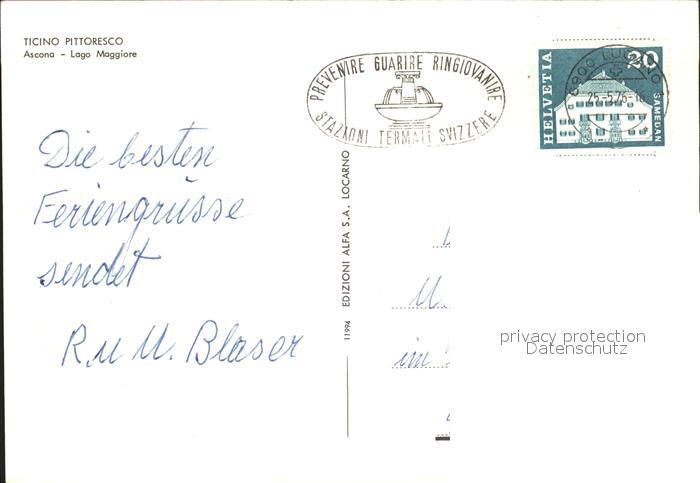 TICINO PITTORESCO
Ascona – Lago Maggiore
PREVENIRE GUARIRE RINGIOVANIRE
STAZIONI TERMALI SVIZZERE
HELVETIA
20
SAMEDAN
LOCARNO
Die besten
Feriengrüsse
sendet
R. u U. Blaser
11994 EDIZIONI ALFA S.A. LOCARNO
U.
im
privacy protection
Datenschutz